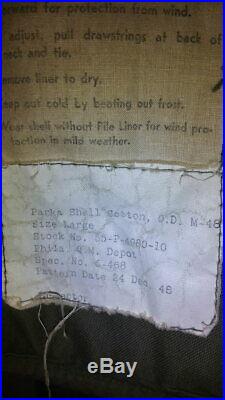 rward for protection from wind.
adjust, pull drawstrings at back of
neck and tie.
move liner to dry.
eep out cold by beating out frost.
Wear shell without Pile Liner for wind pro-
tection in mild weather.
Parka Shell Cotton, O.D. M-48
Size Large
Stock No. 55-P-4080-10
Phila. Q.M. Depot
Spec. No. 6-468
Pattern Date 24 Dec. 48
ebay